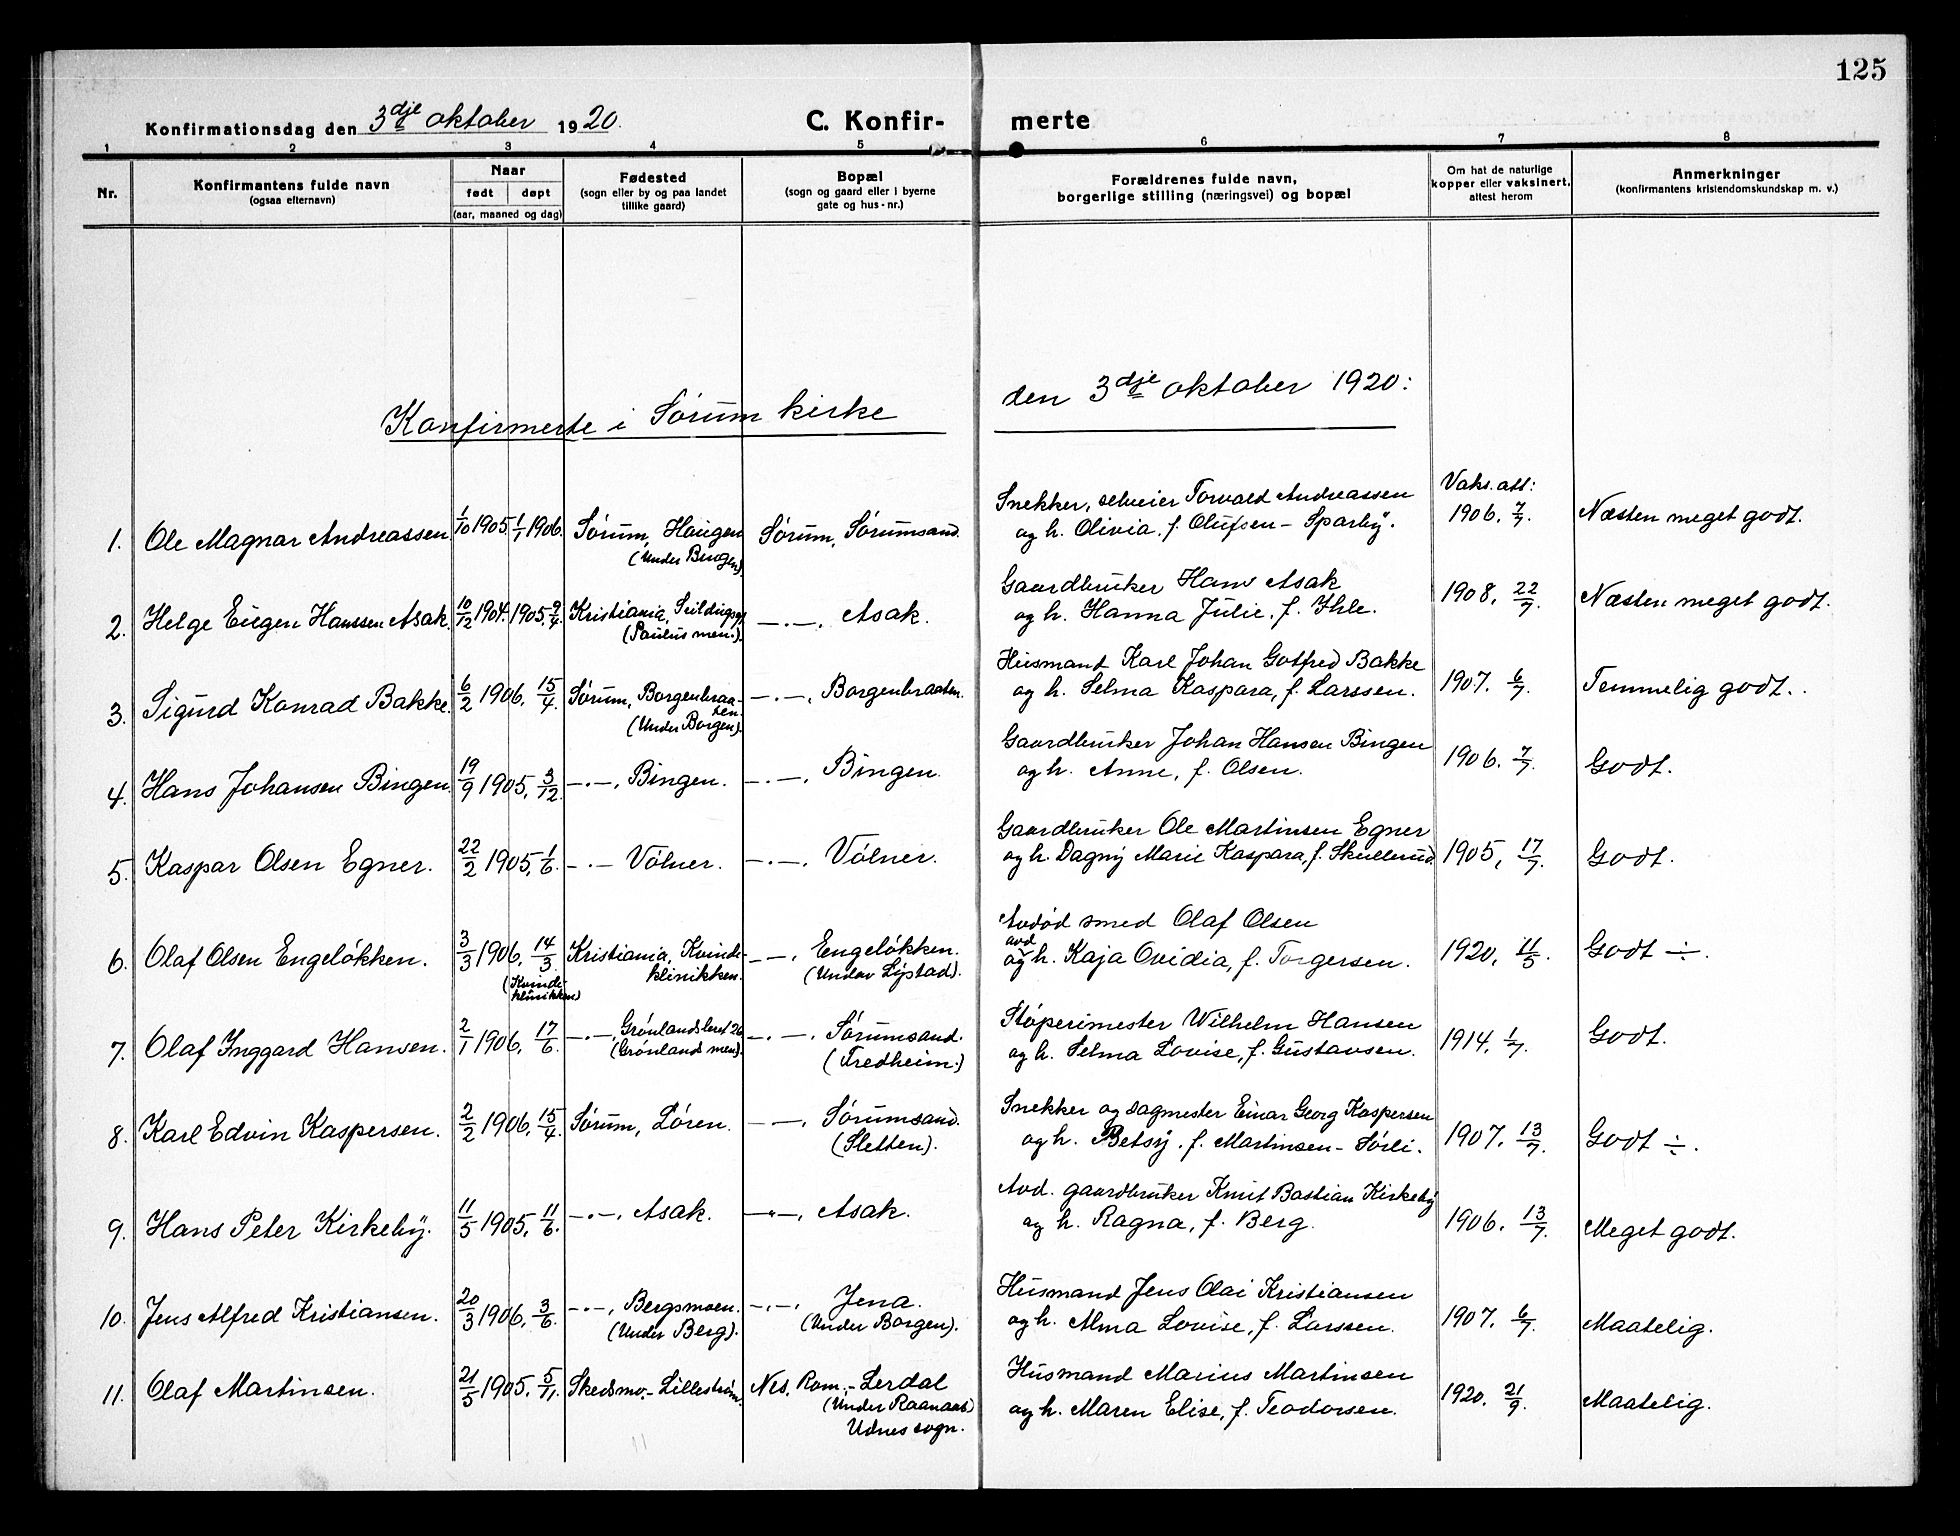 125
Konfirmationsdag den 3dje oktober 1920.
C. Konfir- merte
1 2 3 4 5 6 7 8
Nr.
Konfirmantens fulde navn
(ogsaa efternavn)
Naar
født døpt
(aar, maaned og dag)
Fødested
(sogn eller by og paa landet
tillike gaard)
Bopæl
(sogn og gaard eller i byerne
gate og hus-nr.)
Forældrenes fulde navn,
borgerlige stilling (næringsvei) og bopæl
Om hat de naturlige
kopper eller vaksinert,
attest herom
Anmerkninger
(konfirmantens kristendomskundskap m. v.)
Konfirmerte i Sørum kirke den 3dje oktober 1920:
1. Ole Magnar Andreassen 1/10 1905. 1/1 1906. Sørum, Haugen Sørum, Sørumsand. Snekker, selveier Torvald Andreassen Vaks. att: 1906. 7/7. Næsten meget godt.
(Under Bingen) og h. Olivia, f. Olufsen - Sparby.
2. Helge Eugen Hanssen Asak. 10/12 1904. 1905. 9/4 Kristiania, (Paulus men.). —.—. Asak. Gaardbruker Hans Asak 1908. 22/7. Næsten meget godt.
og h. Hanna Julie, f. Ihle.
3. Sigurd Konrad Bakke. 6/2 1906. 15/4 Sørum, Borgenbraaten. —.—. Borgenbraaten. Husmand Karl Johan Gotfred Bakke 1907. 6/7. Temmelig godt.
(Under Borgen). og h. Selma Kaspara, f. Larssen.
4. Hans Johansen Bingen. 19/9 1905. 3/12. —.—. Bingen. —.—. Bingen. Gaardbruker Johan Hansen Bingen 1906. 7/7. Godt.
og h. Anne, f. Olsen.
5. Kaspar Olsen Egner. 22/2 1905. 1/6. —.— Vølner. —.—. Vølner. Gaardbruker Ole Martinsen Egner 1905, 17/7. Godt.
og h. Dagny Marie Kaspara, f. Skullerud.
6. Olaf Olsen Engeløkken. 3/3 1906. 14/3. Kristiania, Kvindeklinikken. —.—. Engeløkken. Avdød smed Olaf Olsen 1920. 11/5. Godt ÷.
(Kvindeklinikken) (Under Lystad). og avd h. Kaja Ovidia, f. Torgersen.
7. Olaf Inggard Hansen. 2/1 1906. 17/6. —.—. Grønlandsleret 26 —.—. Sørumsand. Støperimester Wilhelm Hansen 1914. 1/7. Godt.
(Grønlands men). (Fredheim.) og h. Selma Lovise, f. Gustavsen.
8. Karl Edvin Kaspersen. 2/2 1906. 15/4. Sørum, Løren. —.—. Sørumsand. Snekker og sagmester Einar Georg Kaspersen 1907. 13/7. Godt ÷.
(Sletten). og h. Betsy, f. Martinsen - Sørli.
9. Hans Peter Kirkeby. 11/5 1905. 11/6. —.—. Asak. —.—. Asak. Avd. gaardbruker Knut Bastian Kirkeby 1906. 13/7. Meget godt.
og h. Ragna, f. Berg.
10. Jens Alfred Kristiansen. 20/3 1906. 3/6. —.—. Bergsmoen. —.—. Jena. Husmand Jens Olai Kristiansen 1907. 6/7. Maatelig.
(Under Berg). (Under Borgen). og h. Alma Lovise, f. Larssen.
11. Olaf Martinsen. 21/5 1905. 5/11. Skedsmo.- Lillestrøm. Nes, Rom.- Lerdal Husmand Marius Martinsen 1920. 21/9. Maatelig.
(Under Raanaas) og h. Maren Elise, f. Teodorsen.
Udnes sogn.
11